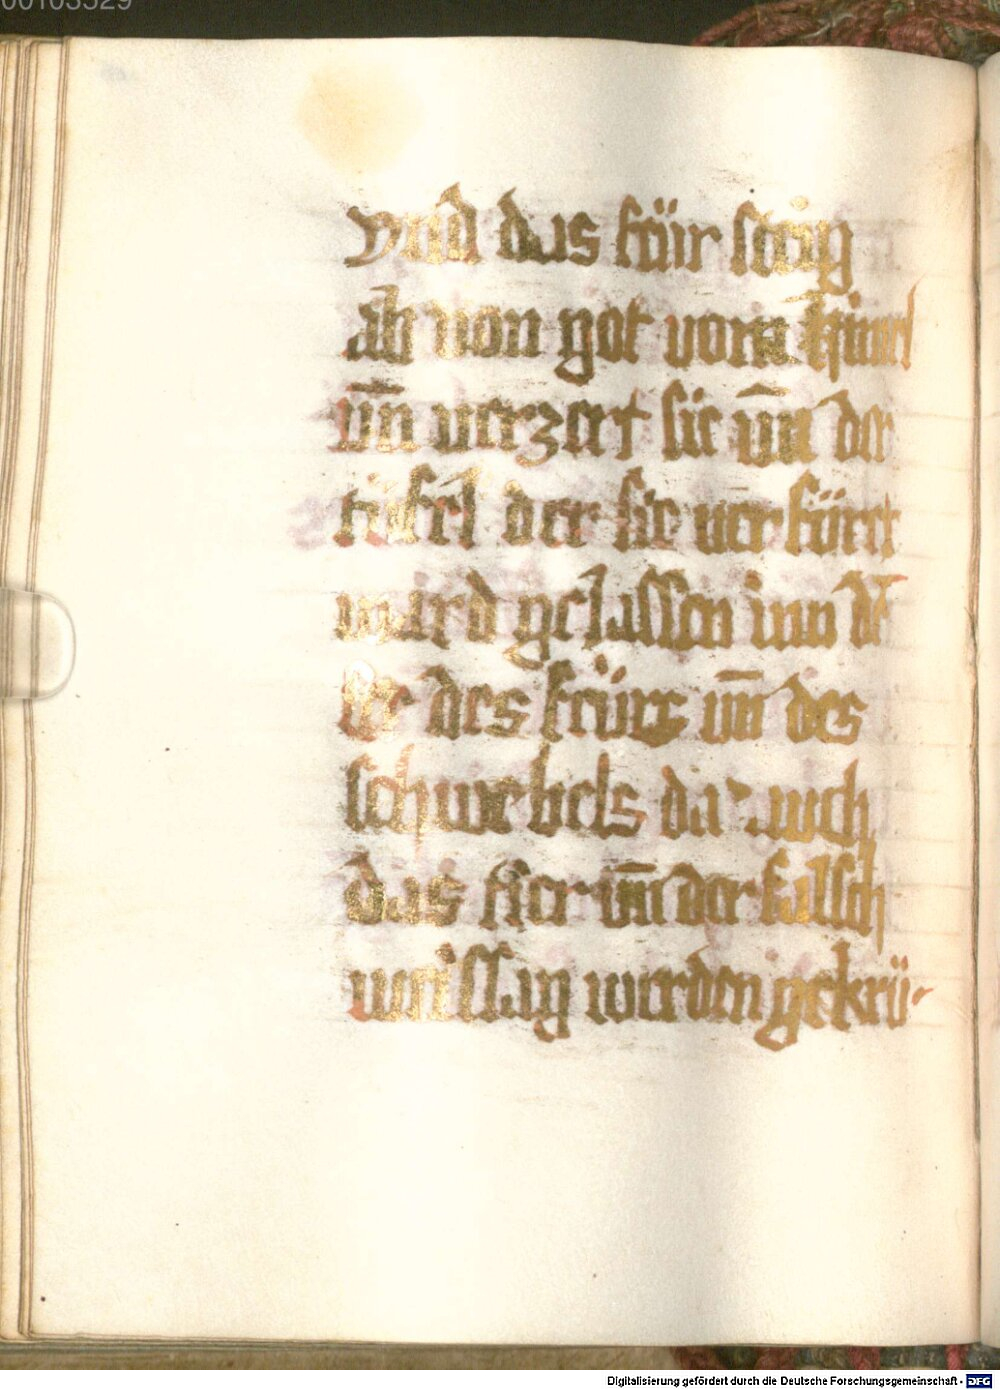 00103529
vnd das feür steig
ab von got vom himel
vn̄ verzert sie vn̄ der
tüfel der sie verfüret
ward gelassen inn de
se des feürs vn̄ des
schwebels da auch
das thier vn̄ der falsch
weissag werden gekrü-
Digitalisierung gefördert durch die Deutsche Forschungsgemeinschaft - DFG